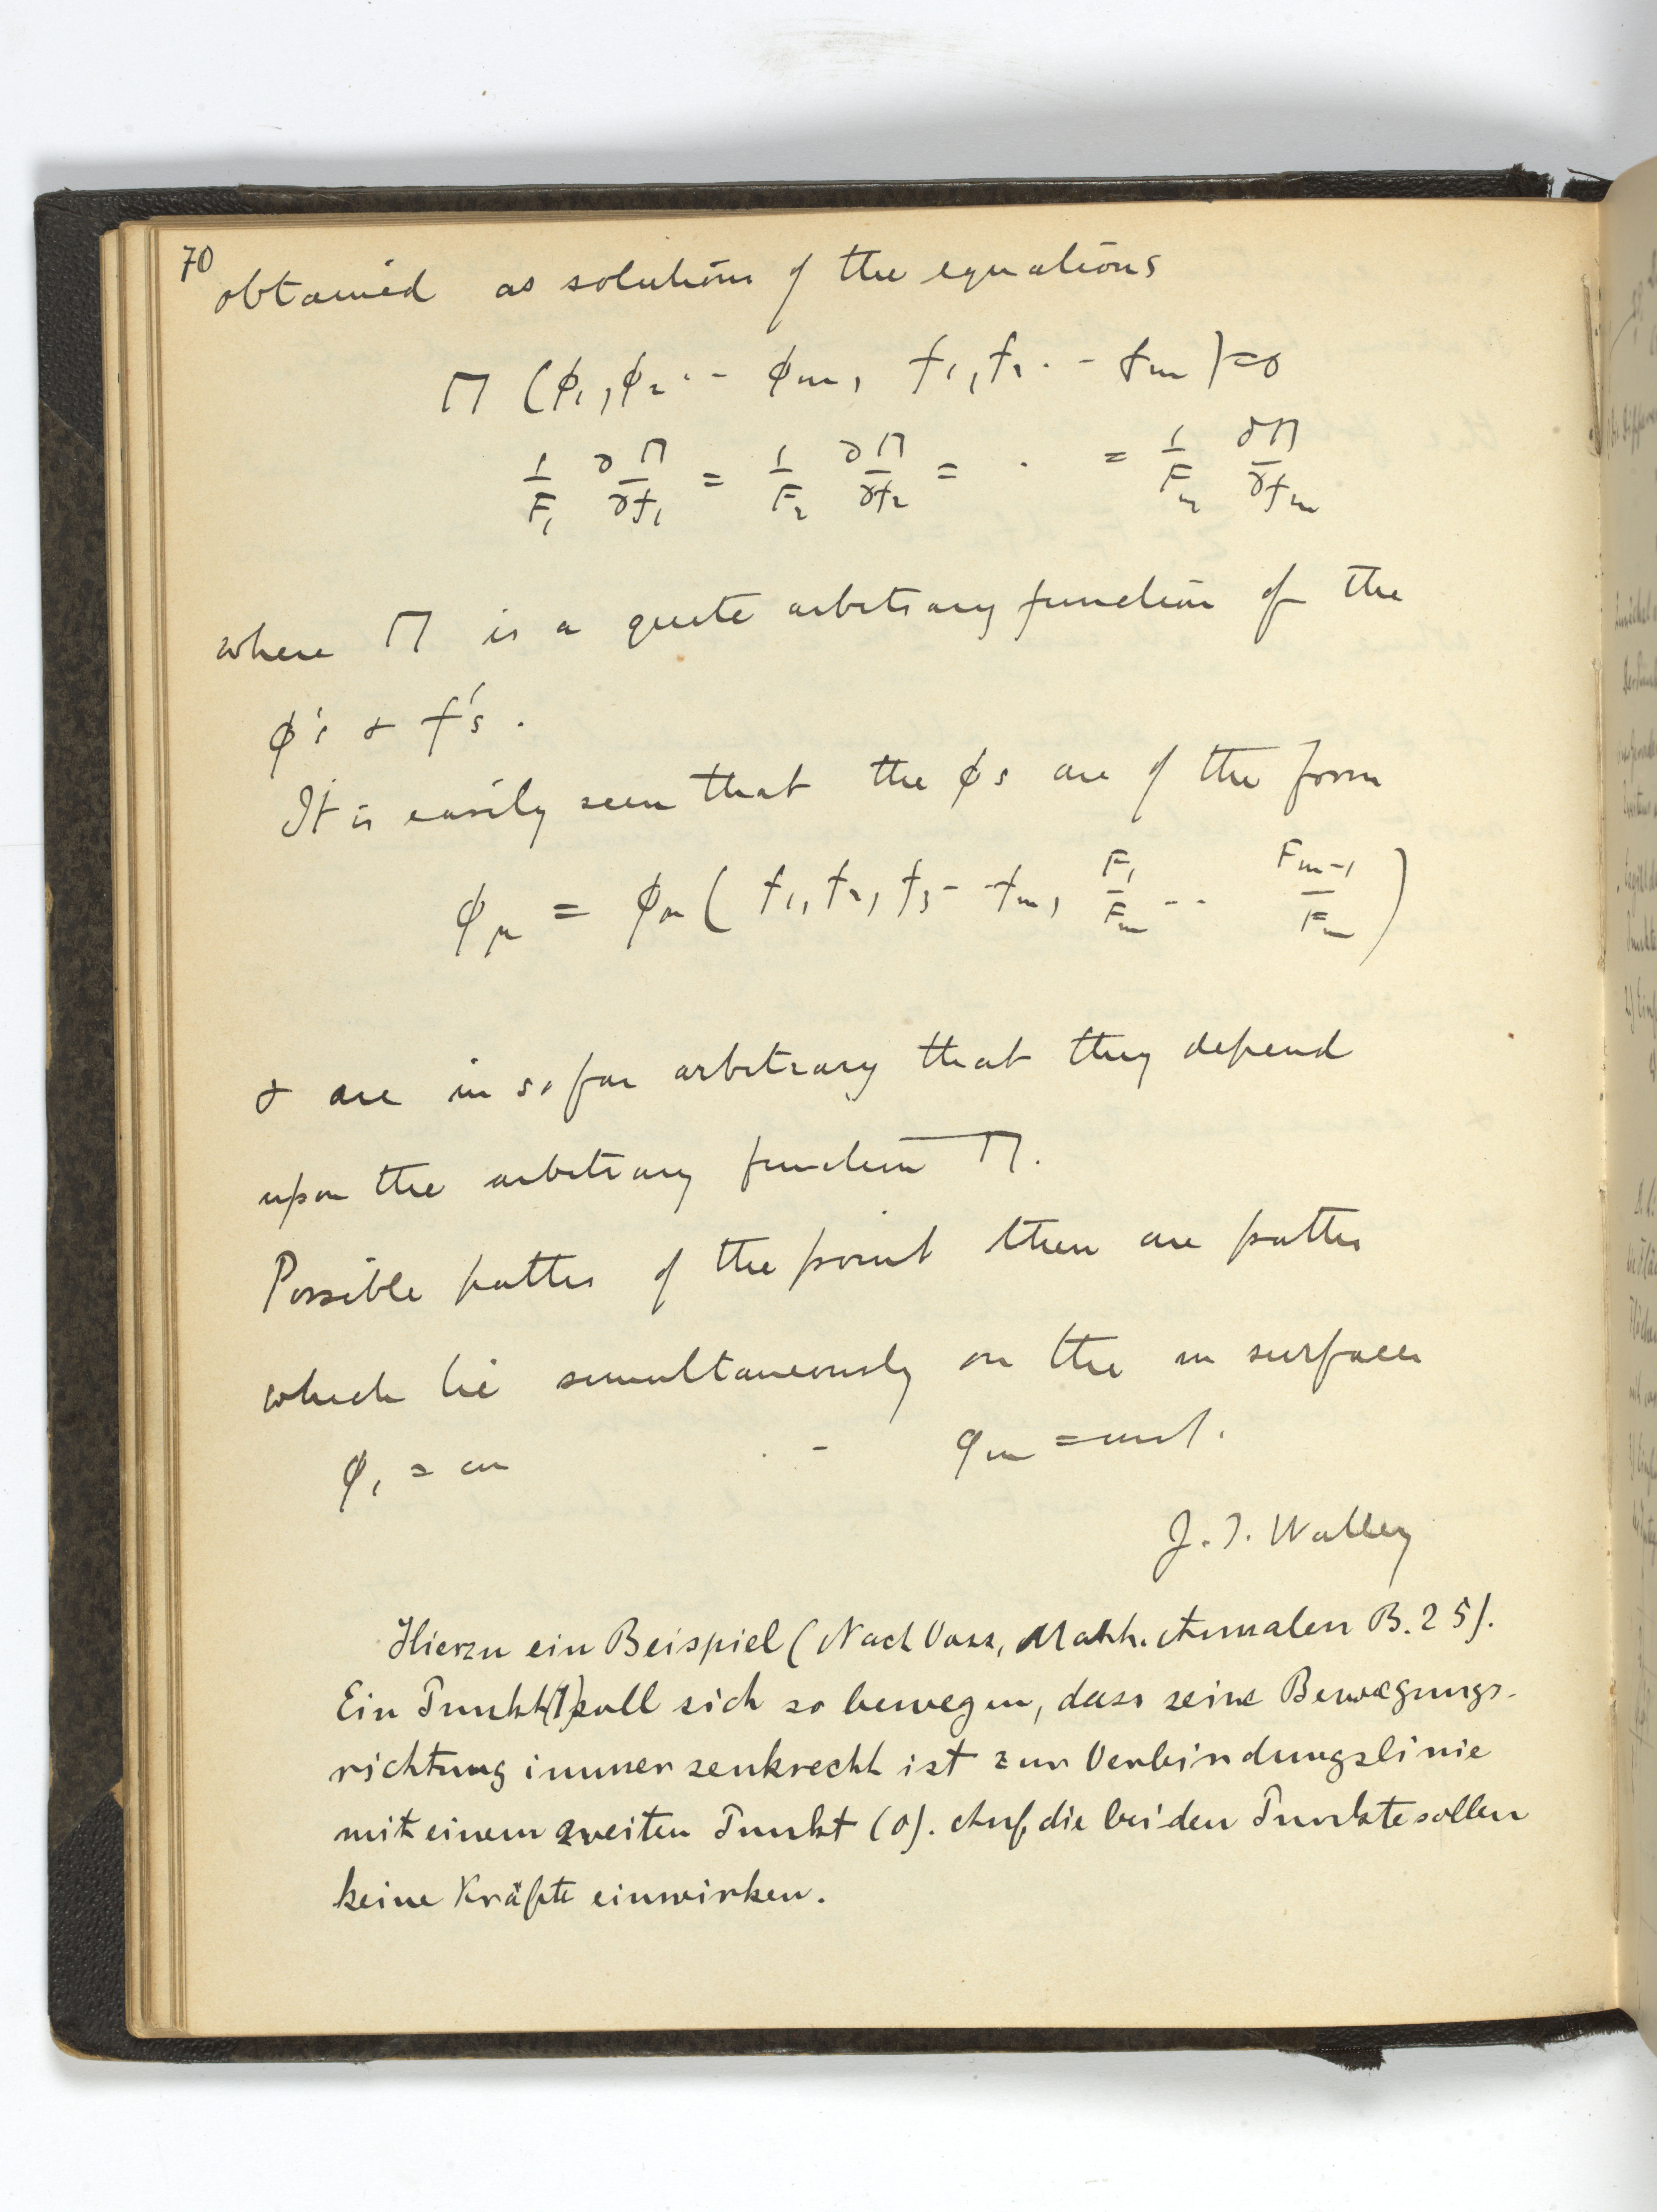 70
obtained as solutions of the equations
Π (ϕ₁, ϕ₂ · - ϕₘ, f₁, f₂ · - fₘ) = 0
1/F₁ ∂Π/∂f₁ = 1/F₂ ∂Π/∂f₂ = · = 1/Fₘ ∂Π/∂fₘ
where Π is a quite arbitrary function of the
ϕ's & f's.
It is easily seen that the ϕs are of the form
ϕμ = ϕμ ( f₁, f₂, f₃ - - fₘ, F₁/Fₘ - - Fₘ₋₁/Fₘ )
& are in so far arbitrary that they depend
upon the arbitrary function Π.
Possible paths of the point then are paths
which lie simultaneously on the m surfaces
φ₁ = · - φₘ = const.
J. T. Walley
Hierzu ein Beispiel (Nach Voss, Math. Annalen B. 25).
Ein Punkt (1) soll sich so bewegen, dass seine Bewegungs-
richtung immer senkrecht ist zur Verbindungslinie
mit einem zweiten Punkt (0). Auf die beiden Punkte sollen
keine Kräfte einwirken.